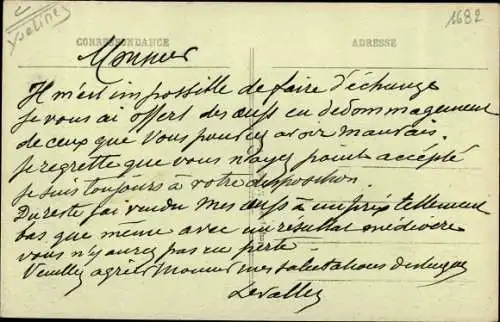 Yvelines
1682
CORRESPONDANCE
ADRESSE
Monsieur
Il m'est impossible de faire d'échange
je vous ai offert des œufs en dedommagement
de ceux que vous pouviez avoir mauvais.
je regrette que vous n'ayez point accépté
je suis toujours à votre disposition.
Du reste j'ai vendu mes œufs à un prix tellement
bas que meme avec un résultat médiocre
vous n'y aurez pas eu perte.
Veuillez agréer Monsieur mes salutations distinguées
Levallez